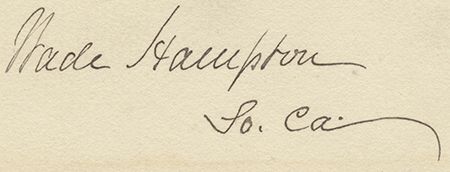 Wade Hampton
So. Ca.